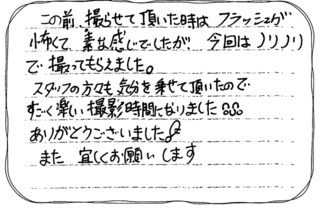 この前、撮らせて頂いた時は フラッシュが
怖くて、素な感じでしたが 今回は ノリノリ
で 撮ってもらえました。
スタッフの方々も 気分を乗せて頂いたので
すごく楽しい 撮影時間になりました
ありがとうございました
また 宜しくお願いします